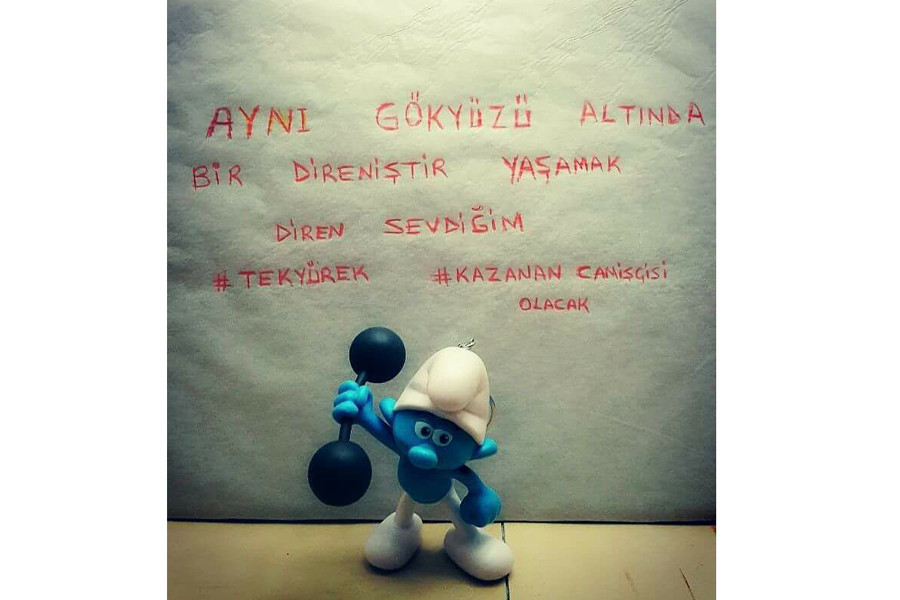 AYNI GÖKYÜZÜ ALTINDA
BİR DİRENİŞTİR YAŞAMAK
DİREN SEVDİĞİM
#TEKYÜREK #KAZANAN CAMİŞÇİSİ
OLACAK